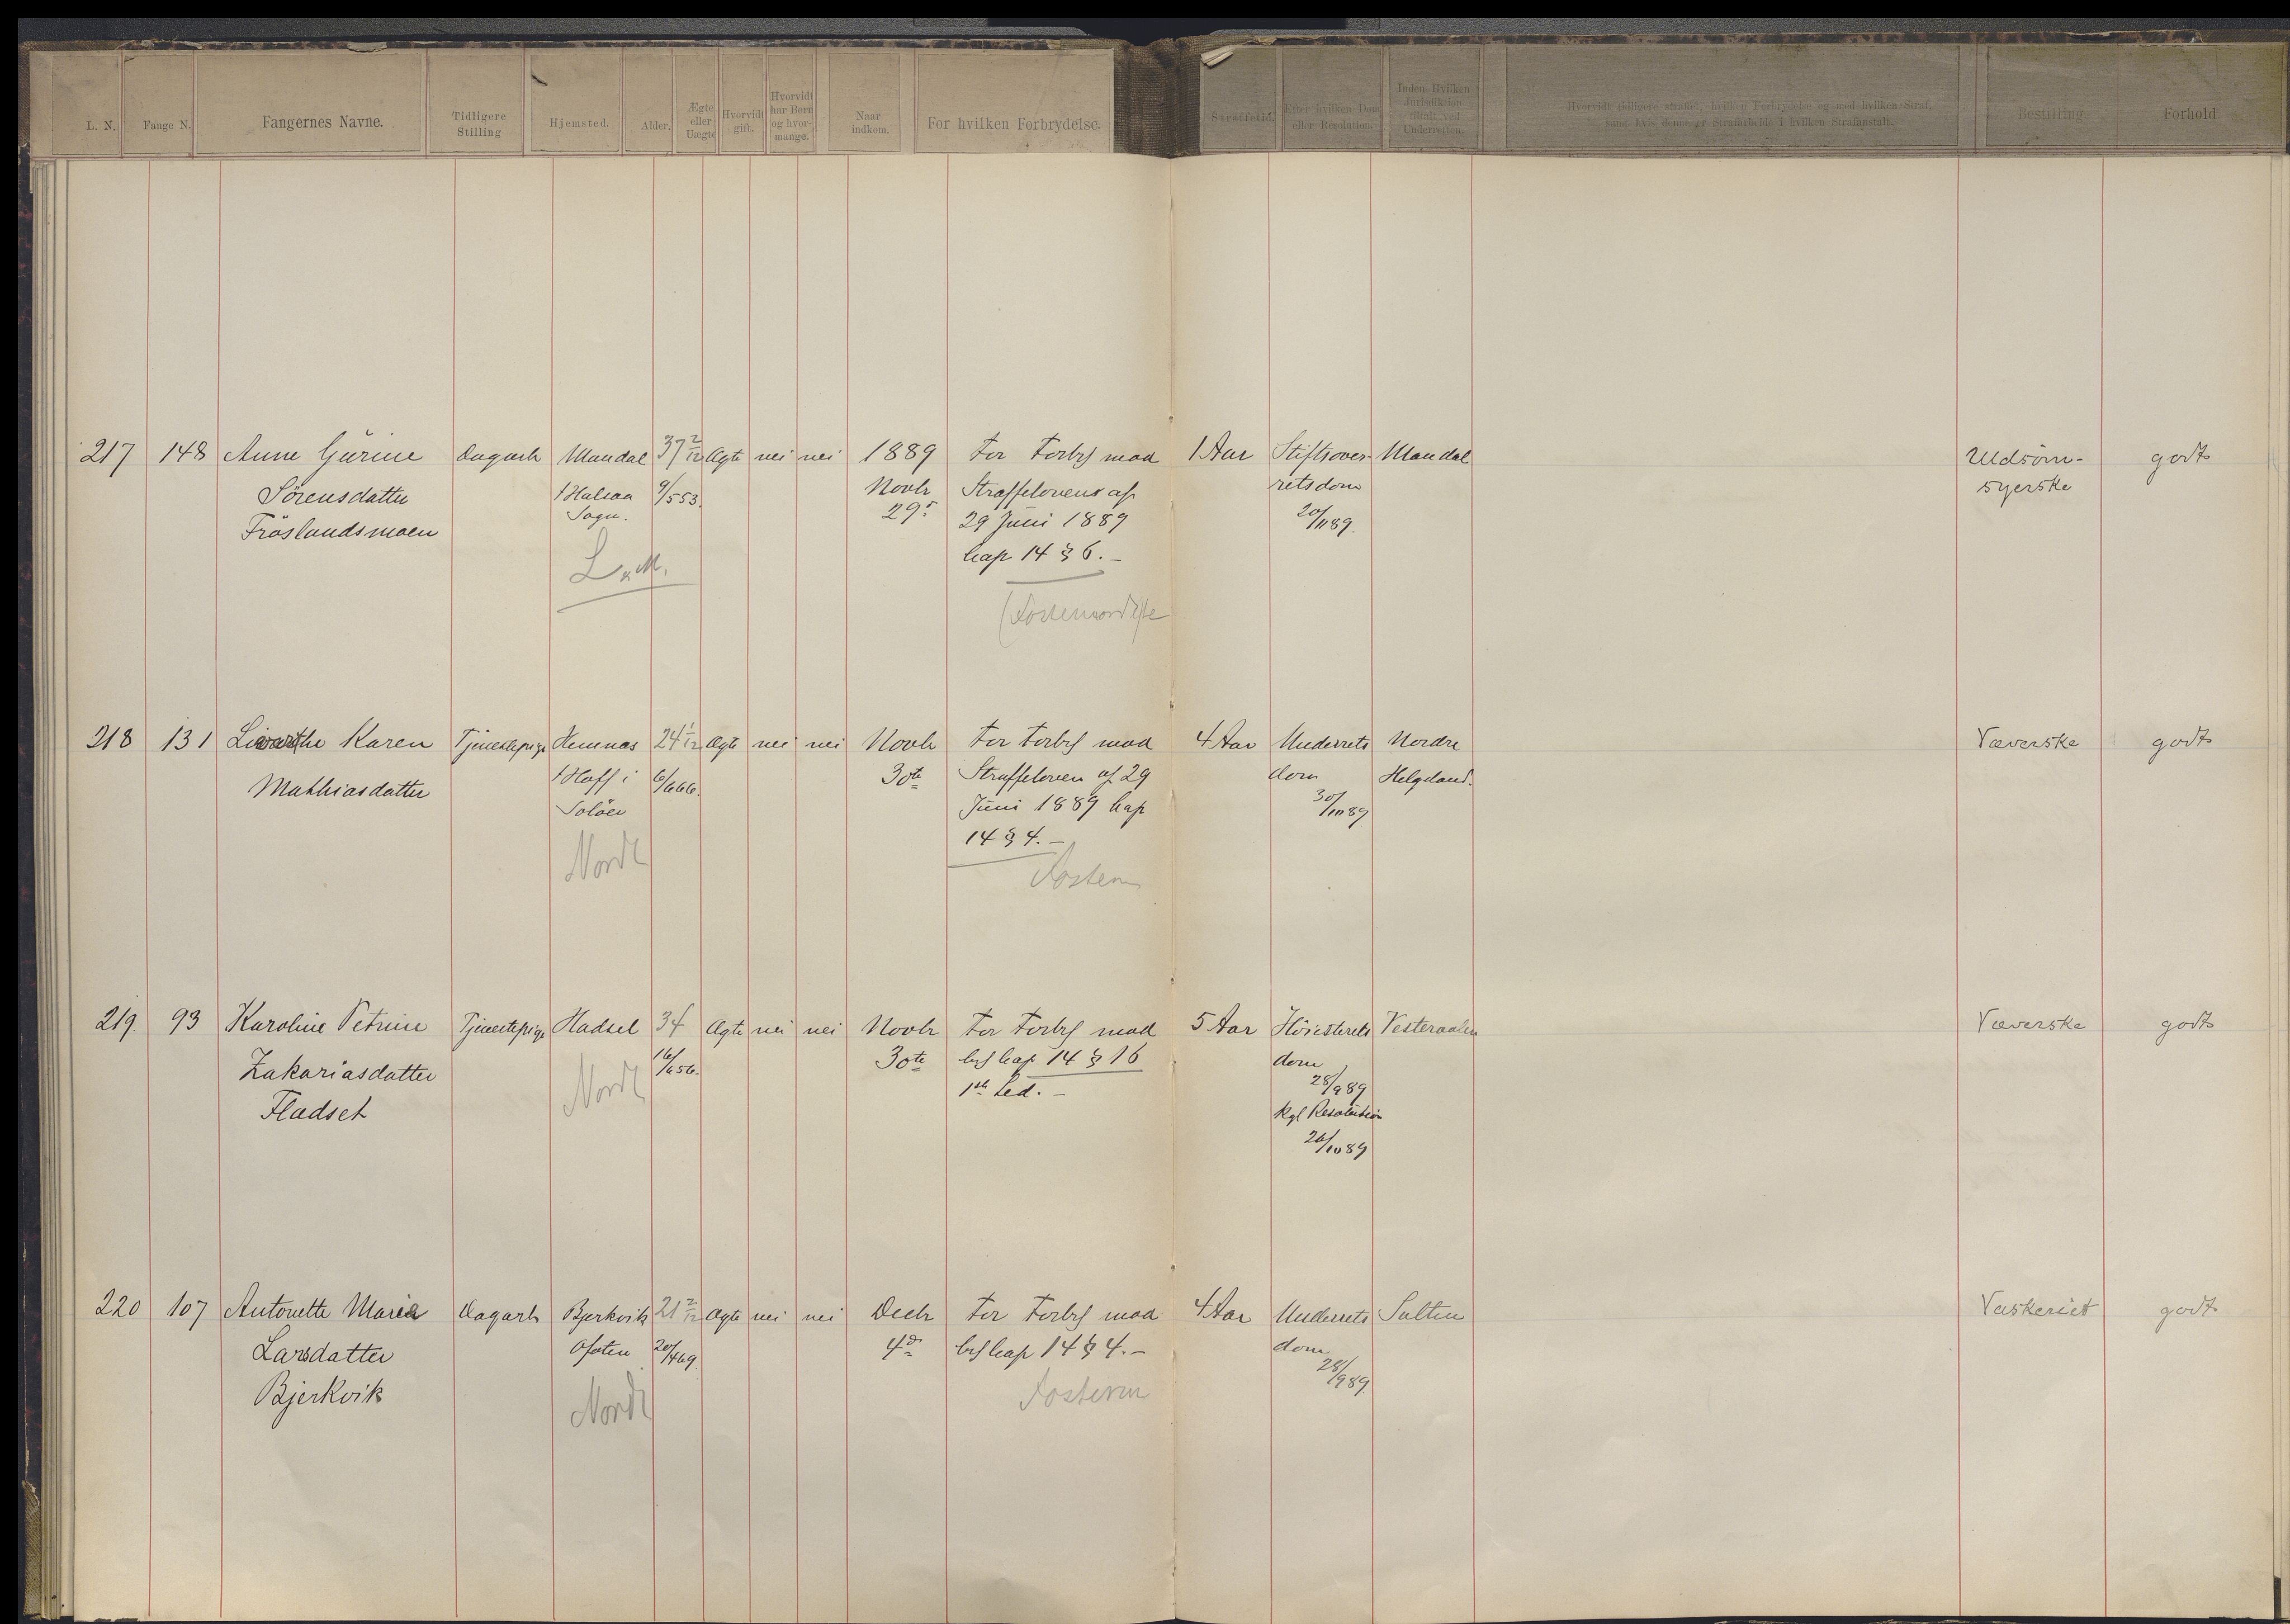 L. N. Fange N. Fangernes Navne. Tidligere Stilling Hjemsted. Alder. Ægte eller Uægte Hvorvidt gift. Hvorvidt har Børn og hvormange. Naar indkom. For hvilken Forbrydelse. Straffetid. Efter hvilken Dom eller Resolution. Inden Hvilken Jurisdiktion tiltalt ved Underretten. Hvorvidt tidligere straffet, hvilken Forbrydelse og med hvilken Straf, samt hvis denne er Strafarbeide i hvilken Strafanstalt. Bestilling Forhold
217 148 Anne Gurine Dagarb Mandal 37 2/12 Ægte nei nei 1889 For Forbr mod 1 Aar Stiftsover- Mandal Udsöm- godt
Sörensdatter f Halsaa 9/5 53. Novbr Straffelovens af retsdom syerske
Fröslandsmoen Sogn. 29. 29 Juni 1889 20/11 89.
Kap 14 § 6. –
L & M.
218 131 Karen Tjenestepige Hemnæs 24 1/12 Ægte nei nei Novbr For Forbr mod 4 Aar Underrets Nordre Væverske godt
Mathiasdatter f Hoff i 6/6 66. 30te Straffeloven af 29 dom Helgeland.
Solöer Juni 1889 Kap 30/10 89
14 § 4. –
Nordl Fosterm
219. 93 Karoline Petrine Tjenestepige Hadsel 34 Ægte nei nei Novbr For Forbr mod 5 Aar Höiesterets Vesteraalen Væverske godt
Zakariasdatter 16/6 56. 30te Kap 14 § 16 dom
Fladset Nordl 1ste Led. – 28/9 89
Kgl Resolution
26/10 89
220 107 Antonette Maria Dagarb Bjerkvik 21 2/12 Ægte nei nei Decbr For Forbr mod 4 Aar Underrets Salten Vaskeriet godt
Larsdatter Ofoten 20/4 69. 4de Kap 14 § 4. – dom
Bjerkvik 28/9 89.
Nordl Fosterm